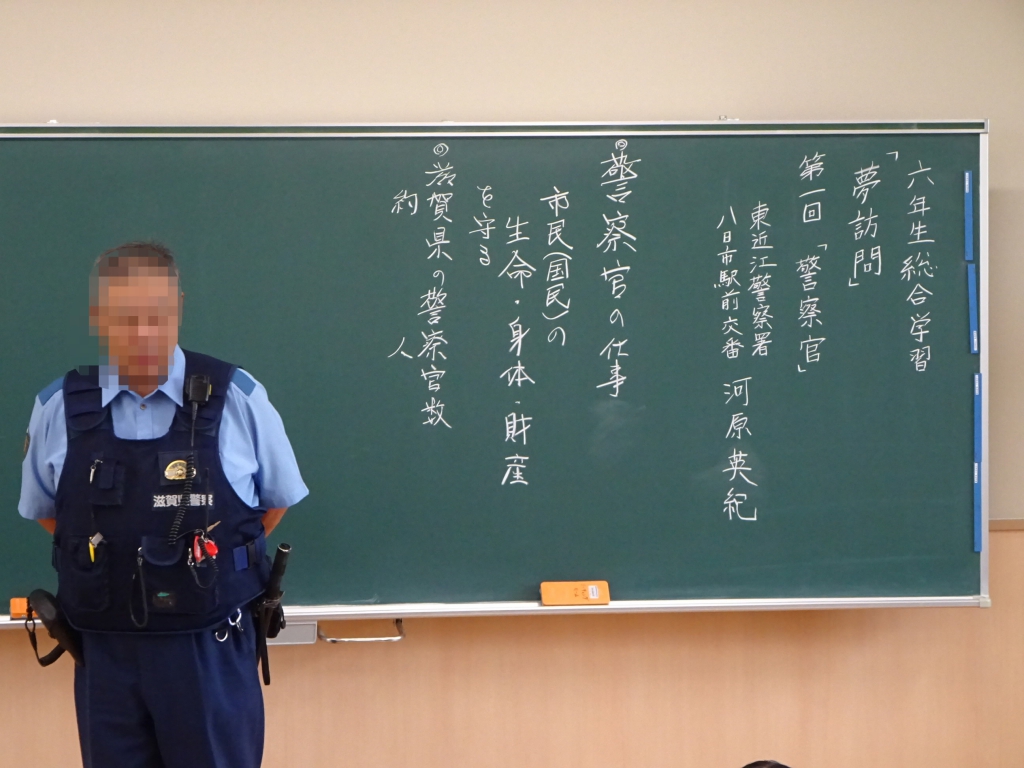 六年生総合学習
「夢訪問」
第一回「警察官」
東近江警察署
八日市駅前交番 河原英紀
◎警察官の仕事
市民(国民)の
生命・身体・財産
を守る
◎滋賀県の警察官数
約 人
滋賀県警察